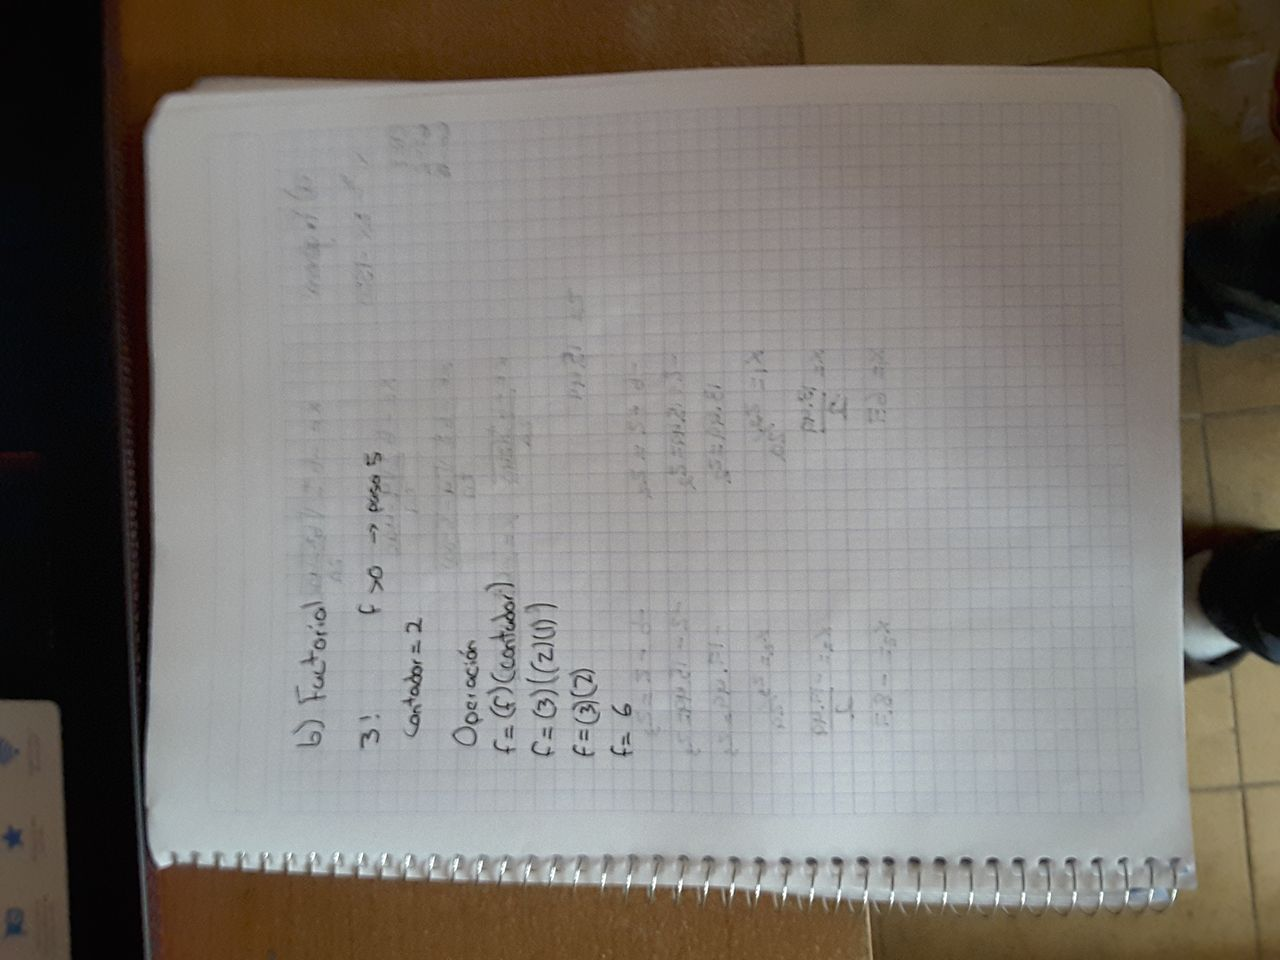 b) Factorial
3!  f >0 → paso 5
contador = 2
Operación
f = (f)(contador)
f = (3)((2)(1))
f = (3)(2)
f = 6